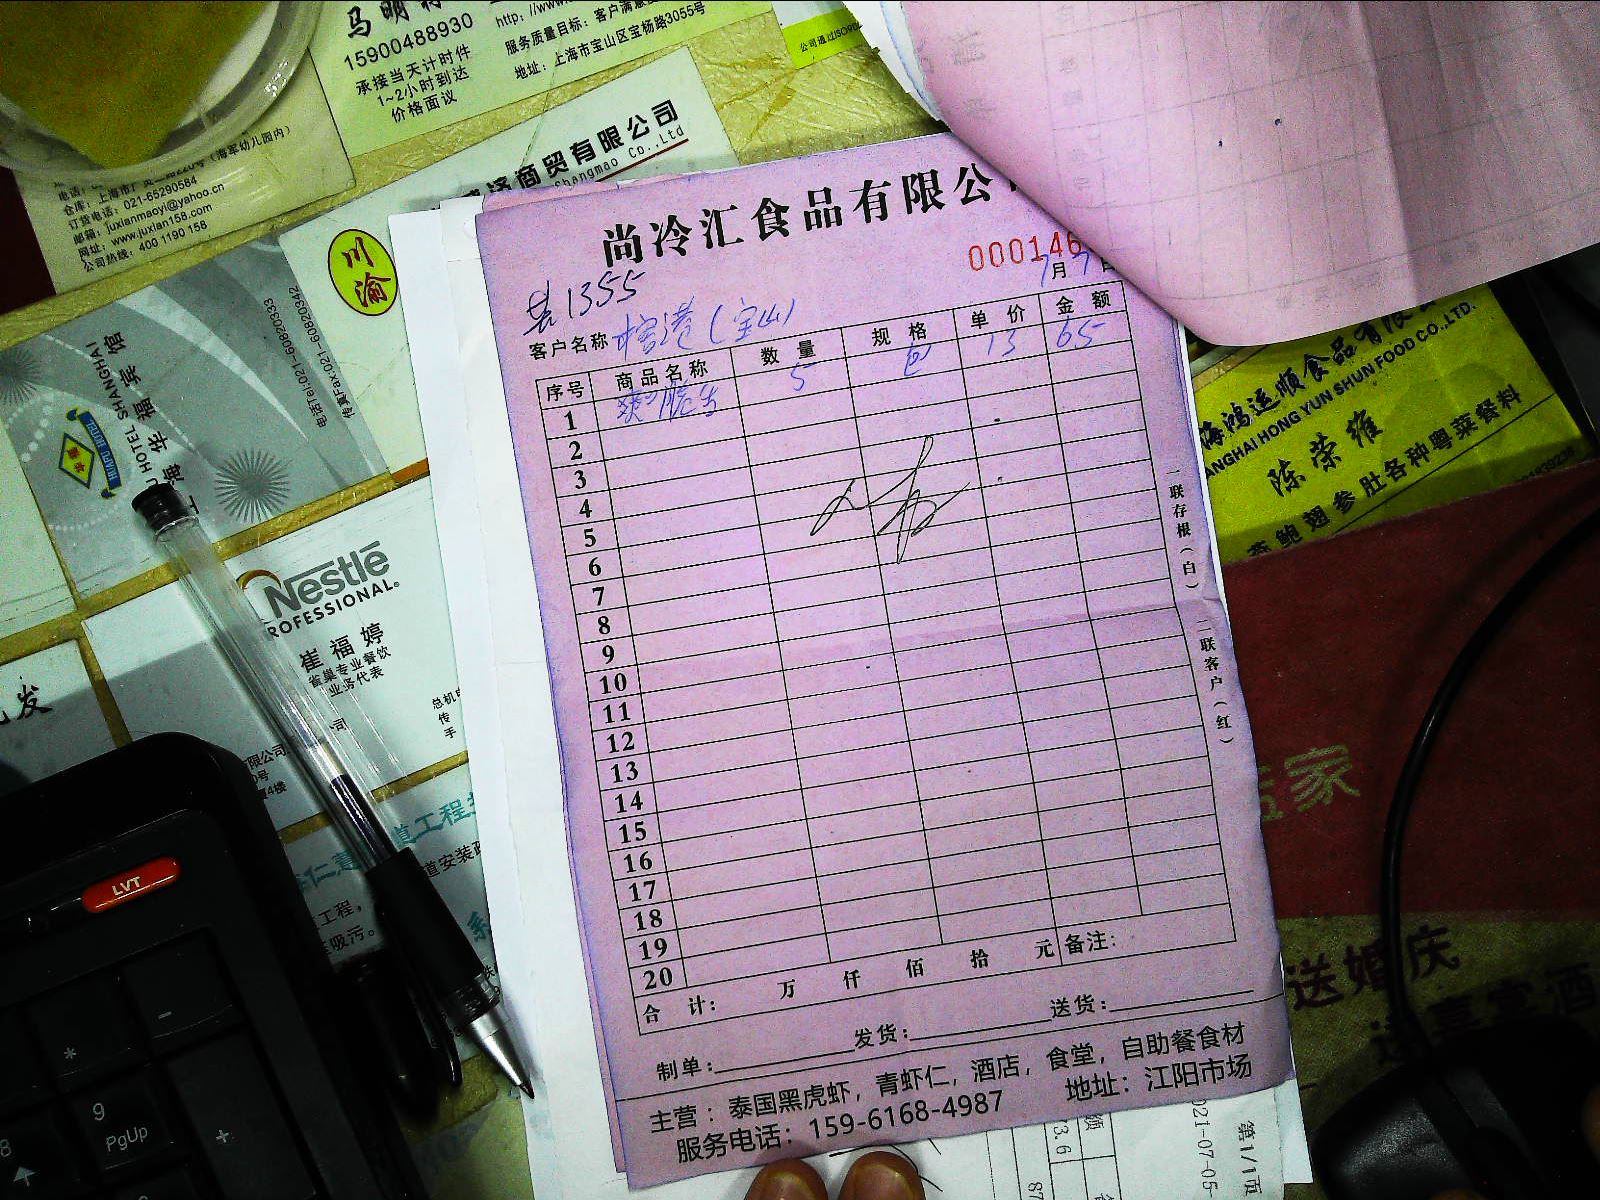 15900488930
承接当天计时件
1~2小时到达
价格面议
服务质量目标：客户满意
地址：上海市宝山区宝杨路3055号
公司通过ISO
商贸有限公司
Shangmao Co.,Ltd
（海军幼儿园内）
订货电话：021-65290584
邮箱：juxianmaoyi@yahoo.cn
网址：www.juxian158.com
公司热线：400 1190 158
川渝
电话Tel:021-60820333
传真Fax:021-60820342
HOTEL SHANGHAI
上海华福宾馆
HUAFU HOTEL
Nestlé
PROFESSIONAL®
崔福婷
雀巢专业餐饮
业务代表
尚冷汇食品有限公
000146
共1355
7月7日
客户名称 榕港（宝山）
序号 商品名称 数量 规格 单价 金额
1 爽脆生 5 包 13 65
2
3
4
5
6
7
8
9
10
11
12
13
14
15
16
17
18
19
20
合计： 万 仟 佰 拾 元 备注：
制单： 发货： 送货：
主营：泰国黑虎虾，青虾仁，酒店，食堂，自助餐食材
服务电话：159-6168-4987 地址：江阳市场
一联存根（白）
二联客户（红）
海鸿运顺食品有限
ANGHAI HONG YUN SHUN FOOD CO.,LTD.
陈荣雍
鲍翅参肚各种粤菜餐料
送婚庆
LVT
9
PgUp
8
*
-
+
第1/1页
021-07-05